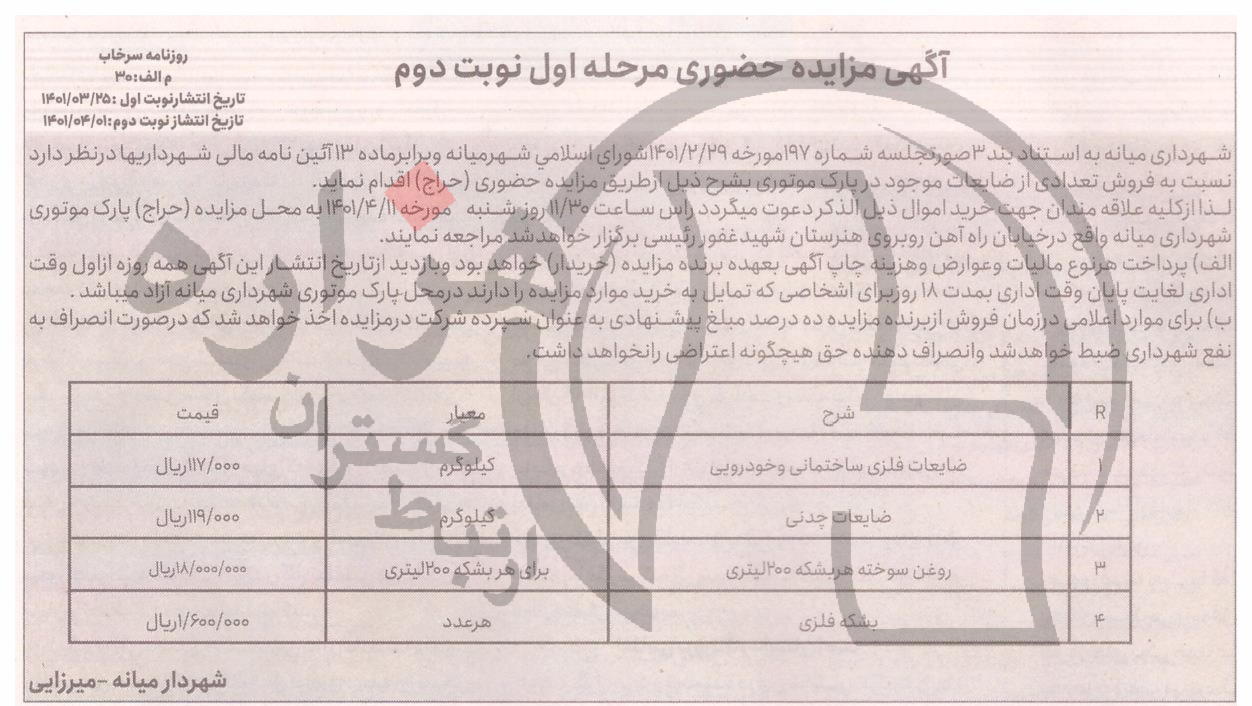 روزنامه سرخاب
م الف:۳۰
تاریخ انتشارنوبت اول :۱۴۰۱/۰۳/۲۵
تاریخ انتشار نوبت دوم:۱۴۰۱/۰۴/۰۱
آگهی مزایده حضوری مرحله اول نوبت دوم
شهرداری میانه به استناد بند۳صورتجلسه شماره ۱۹۷مورخه ۱۴۰۱/۲/۲۹شورای اسلامي شهرمیانه وبرابرماده ۱۳آئین نامه مالی شهرداریها درنظر دارد
نسبت به فروش تعدادی از ضایعات موجود در پارک موتوری بشرح ذیل ازطریق مزایده حضوری (حراج) اقدام نماید.
لذا ازکلیه علاقه مندان جهت خرید اموال ذیل الذکر دعوت میگردد راس ساعت ۱۱/۳۰ روز شنبه مورخه ۱۴۰۱/۴/۱۱ به محل مزایده (حراج) پارک موتوری
شهرداری میانه واقع درخیابان راه آهن روبروی هنرستان شهیدغفور رئیسی برگزار خواهدشد مراجعه نمایند.
الف) پرداخت هرنوع مالیات وعوارض وهزینه چاپ آگهی بعهده برنده مزایده (خریدار) خواهد بود وبازدید ازتاریخ انتشار این آگهی همه روزه ازاول وقت
اداری لغایت پایان وقت اداری بمدت ۱۸ روزبرای اشخاصی که تمایل به خرید موارد مزایده را دارند درمحل پارک موتوری شهرداری میانه آزاد میباشد .
ب) برای موارد اعلامی درزمان فروش ازبرنده مزایده ده درصد مبلغ پیشنهادی به عنوان سپرده شرکت درمزایده اخذ خواهد شد که درصورت انصراف به
نفع شهرداری ضبط خواهدشد وانصراف دهنده حق هیچگونه اعتراضی رانخواهد داشت.
R شرح معیار قیمت
۱ ضایعات فلزی ساختمانی وخودرویی کیلوگرم ۱۱۷/۰۰۰ریال
۲ ضایعات چدنی کیلوگرم ۱۱۹/۰۰۰ریال
۳ روغن سوخته هربشکه ۲۰۰لیتری برای هر بشکه ۲۰۰لیتری ۱۸/۰۰۰/۰۰۰ریال
۴ بشکه فلزی هرعدد ۱/۶۰۰/۰۰۰ریال
شهردار میانه -میرزایی
هزاره
گستران
ارتباط